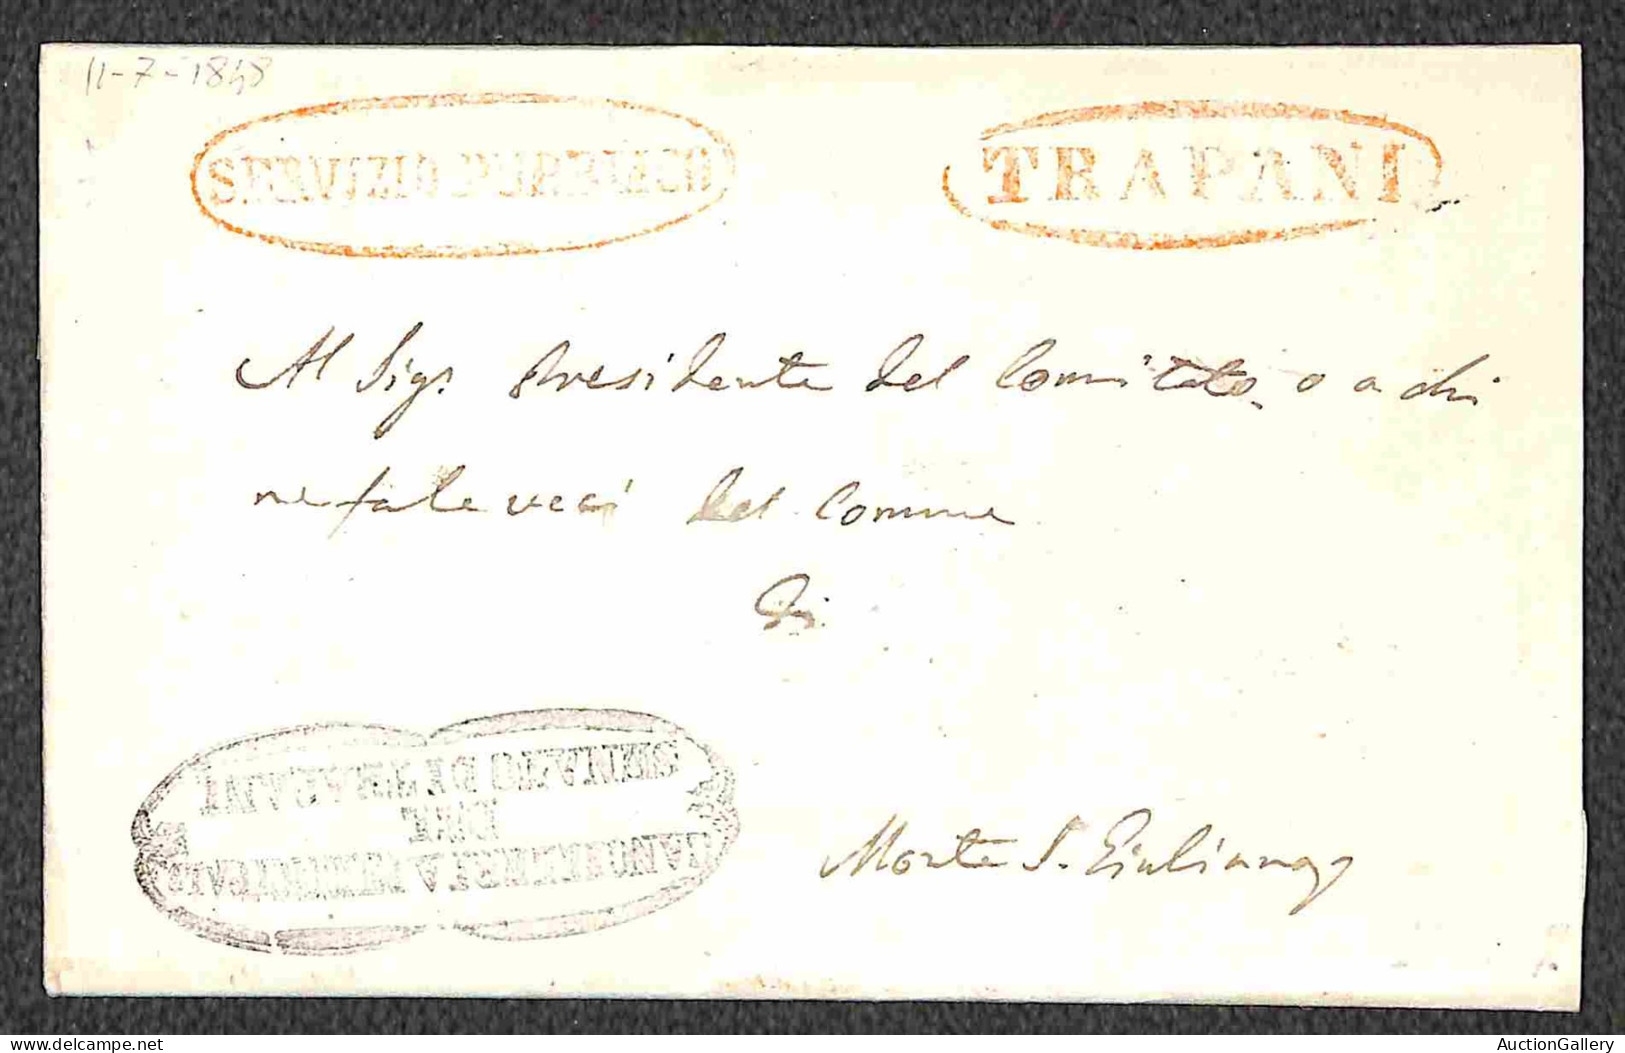 11-7-1848
SERVIZIO PUBBLICO
TRAPANI
Al Sigr Presidente del Comitato o a chi
ne fa le veci del Comune
Di
Monte S. Giuliano
DEL
delcampe.net
AuctionGallery